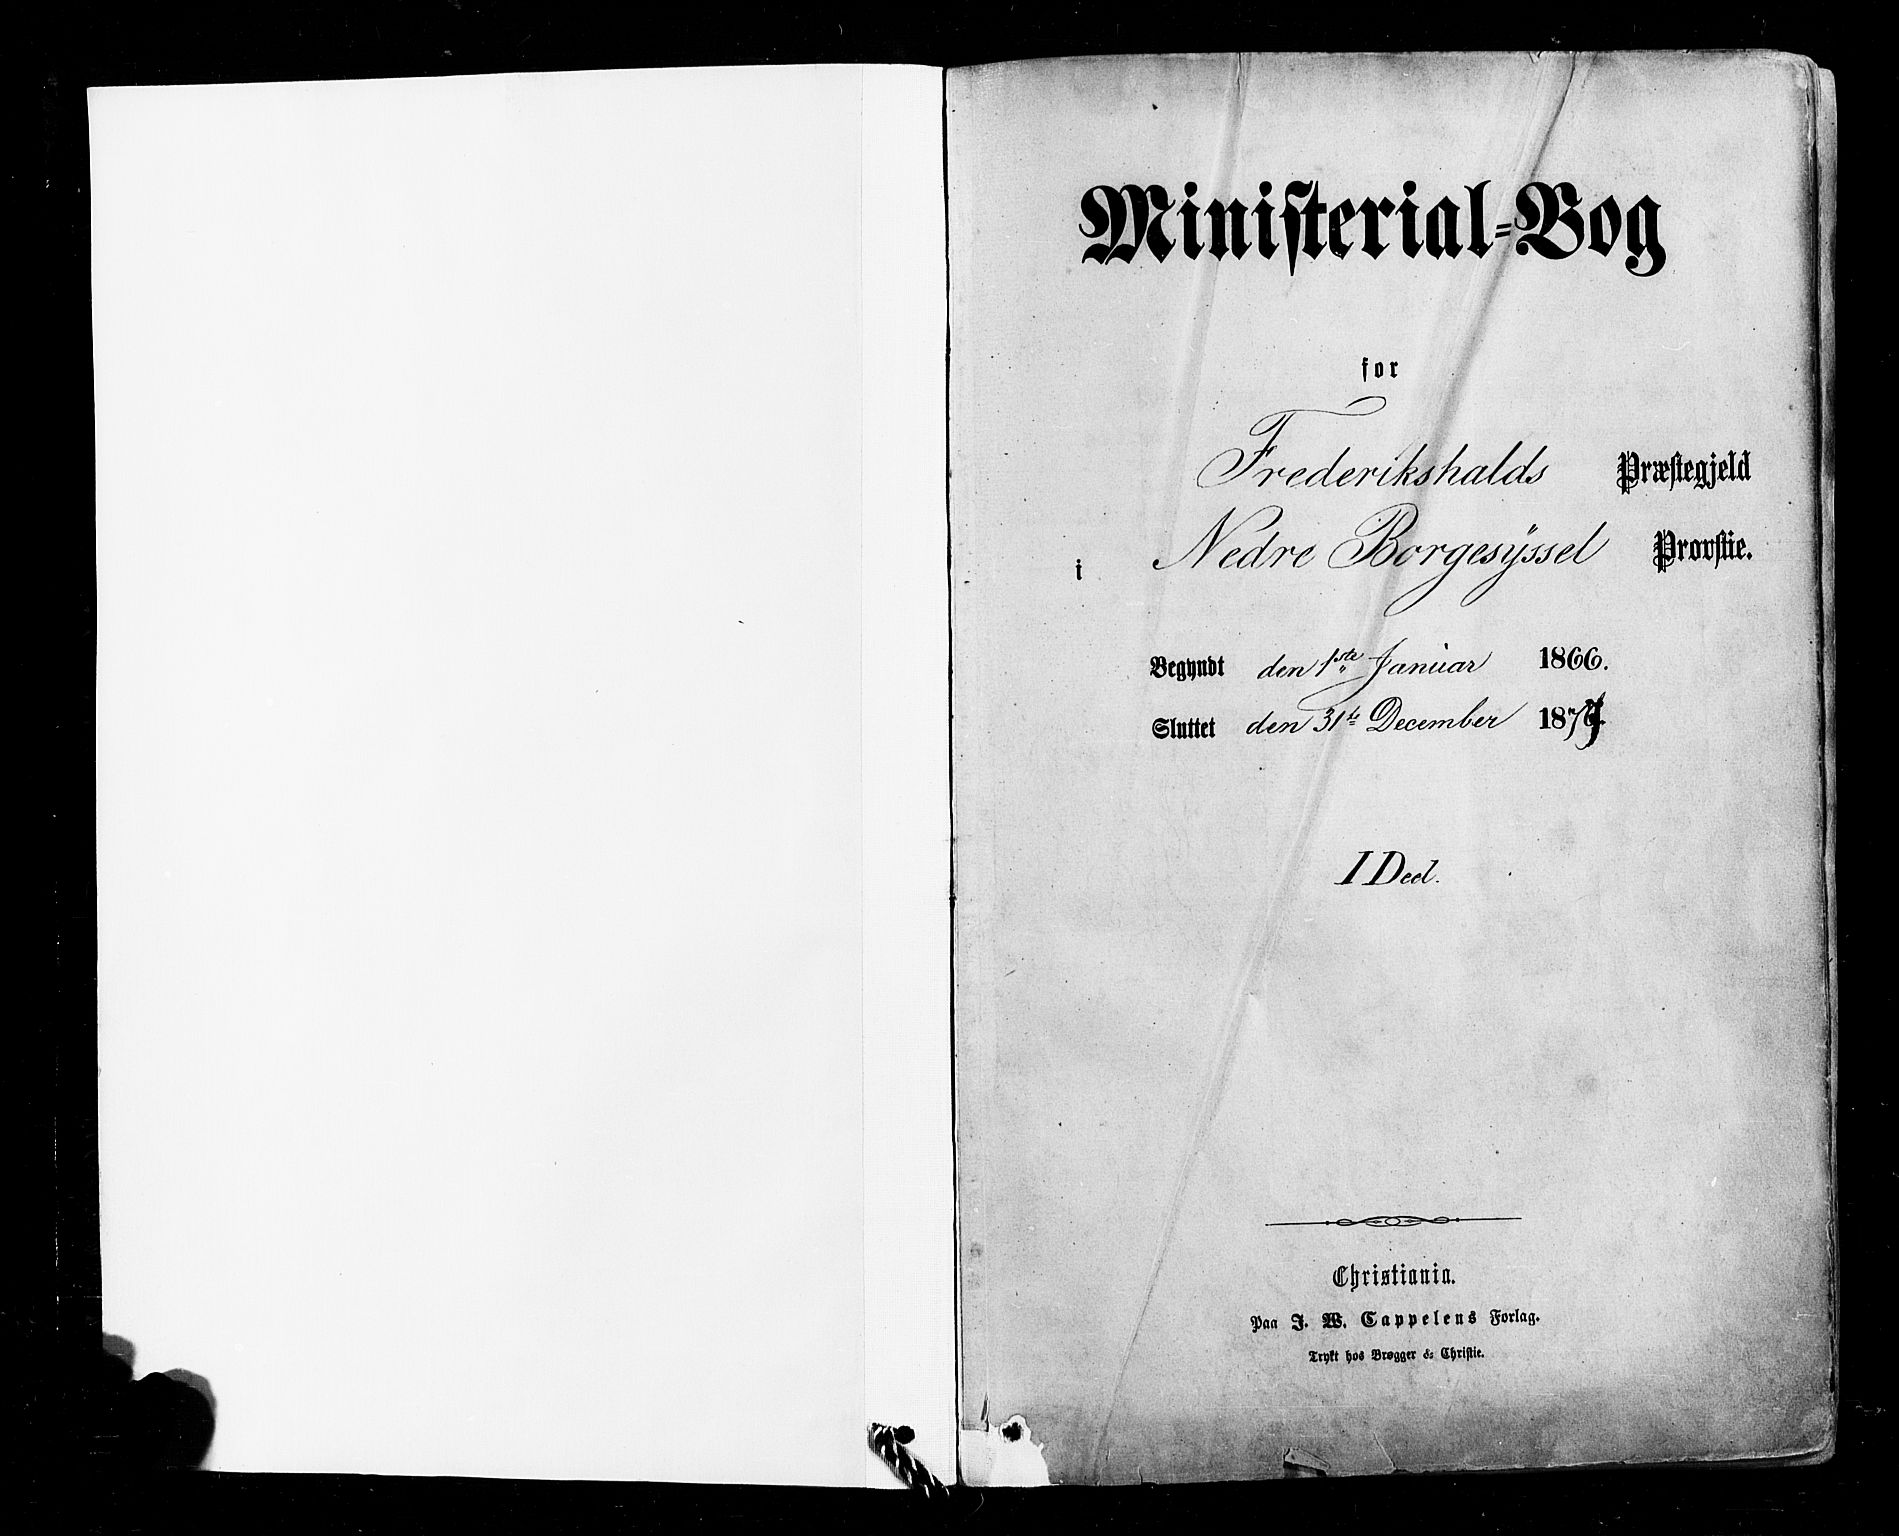 Ministerial-Bog
for
Frederikshalds Præstegjeld
i Nedre Borgesÿssel Provstie.
Begyndt den 1ste Januar 1866.
Sluttet den 31te December
I Deel.
Christiania.
Paa J. W. Cappelens Forlag.
Trykt hos Brøgger & Christie.